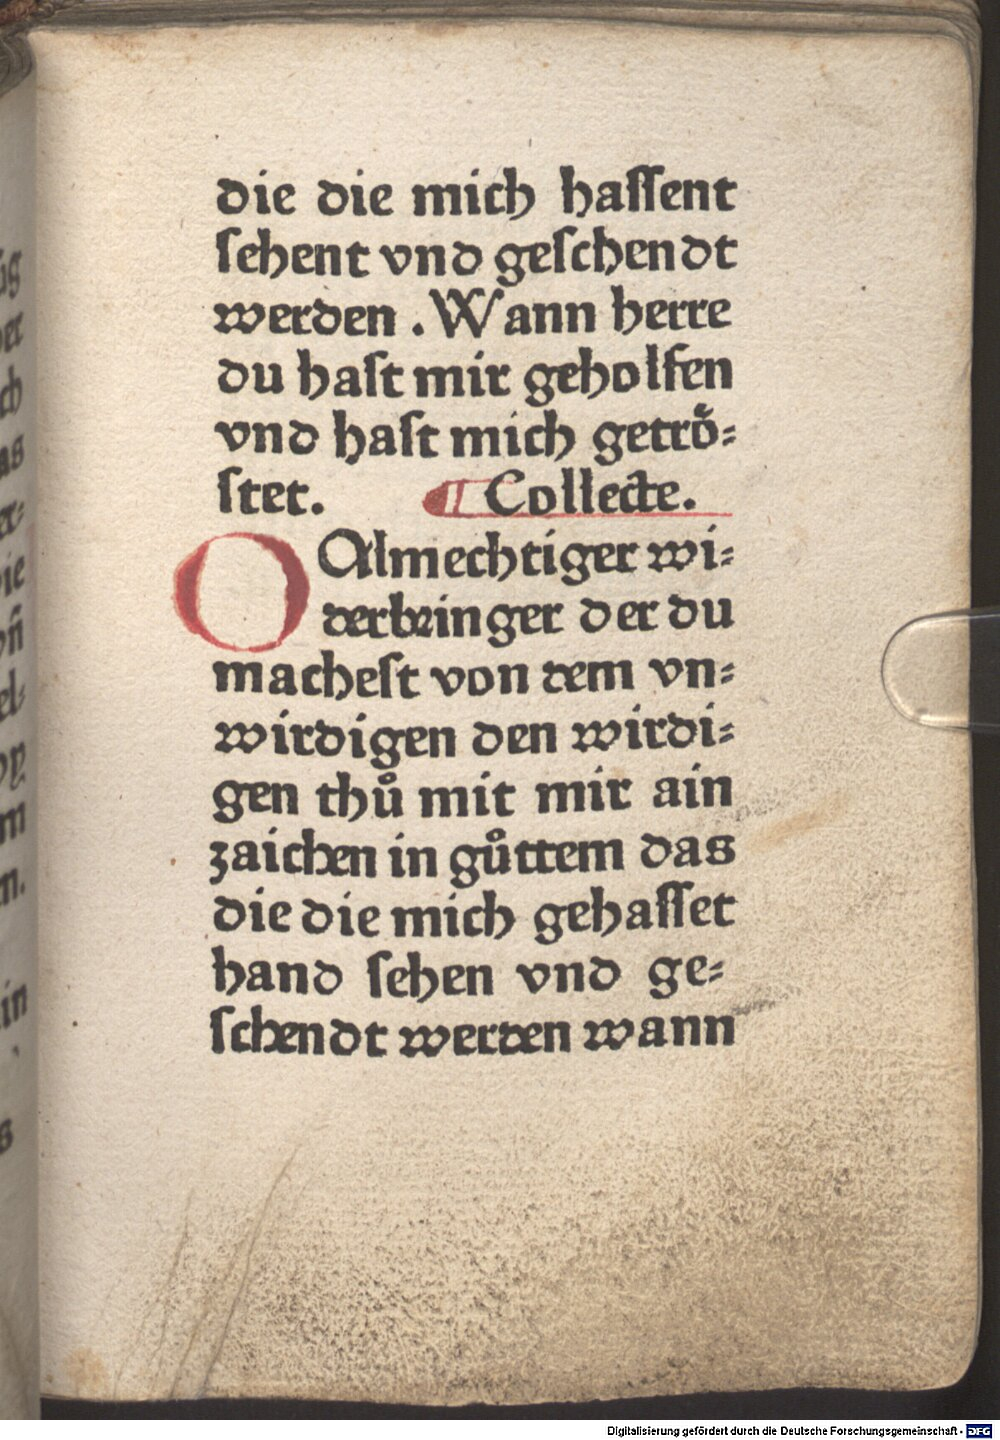 die die mich haſſent
ſehent vnd geſchendt
werden . Wann herre
du haſt mir geholfen
vnd haſt mich getroͤ⸗
ſtet. ¶ Collecte.
O Almechtiger wi⸗
derbꝛinger der du
macheſt von dem vn⸗
wirdigen den wirdi⸗
gen thuͦ mit mir ain
zaichen in guͦttem das
die die mich gehaſſet
hand ſehen vnd ge⸗
ſchendt werden wann
Digitalisierung gefördert durch die Deutsche Forschungsgemeinschaft - DFG